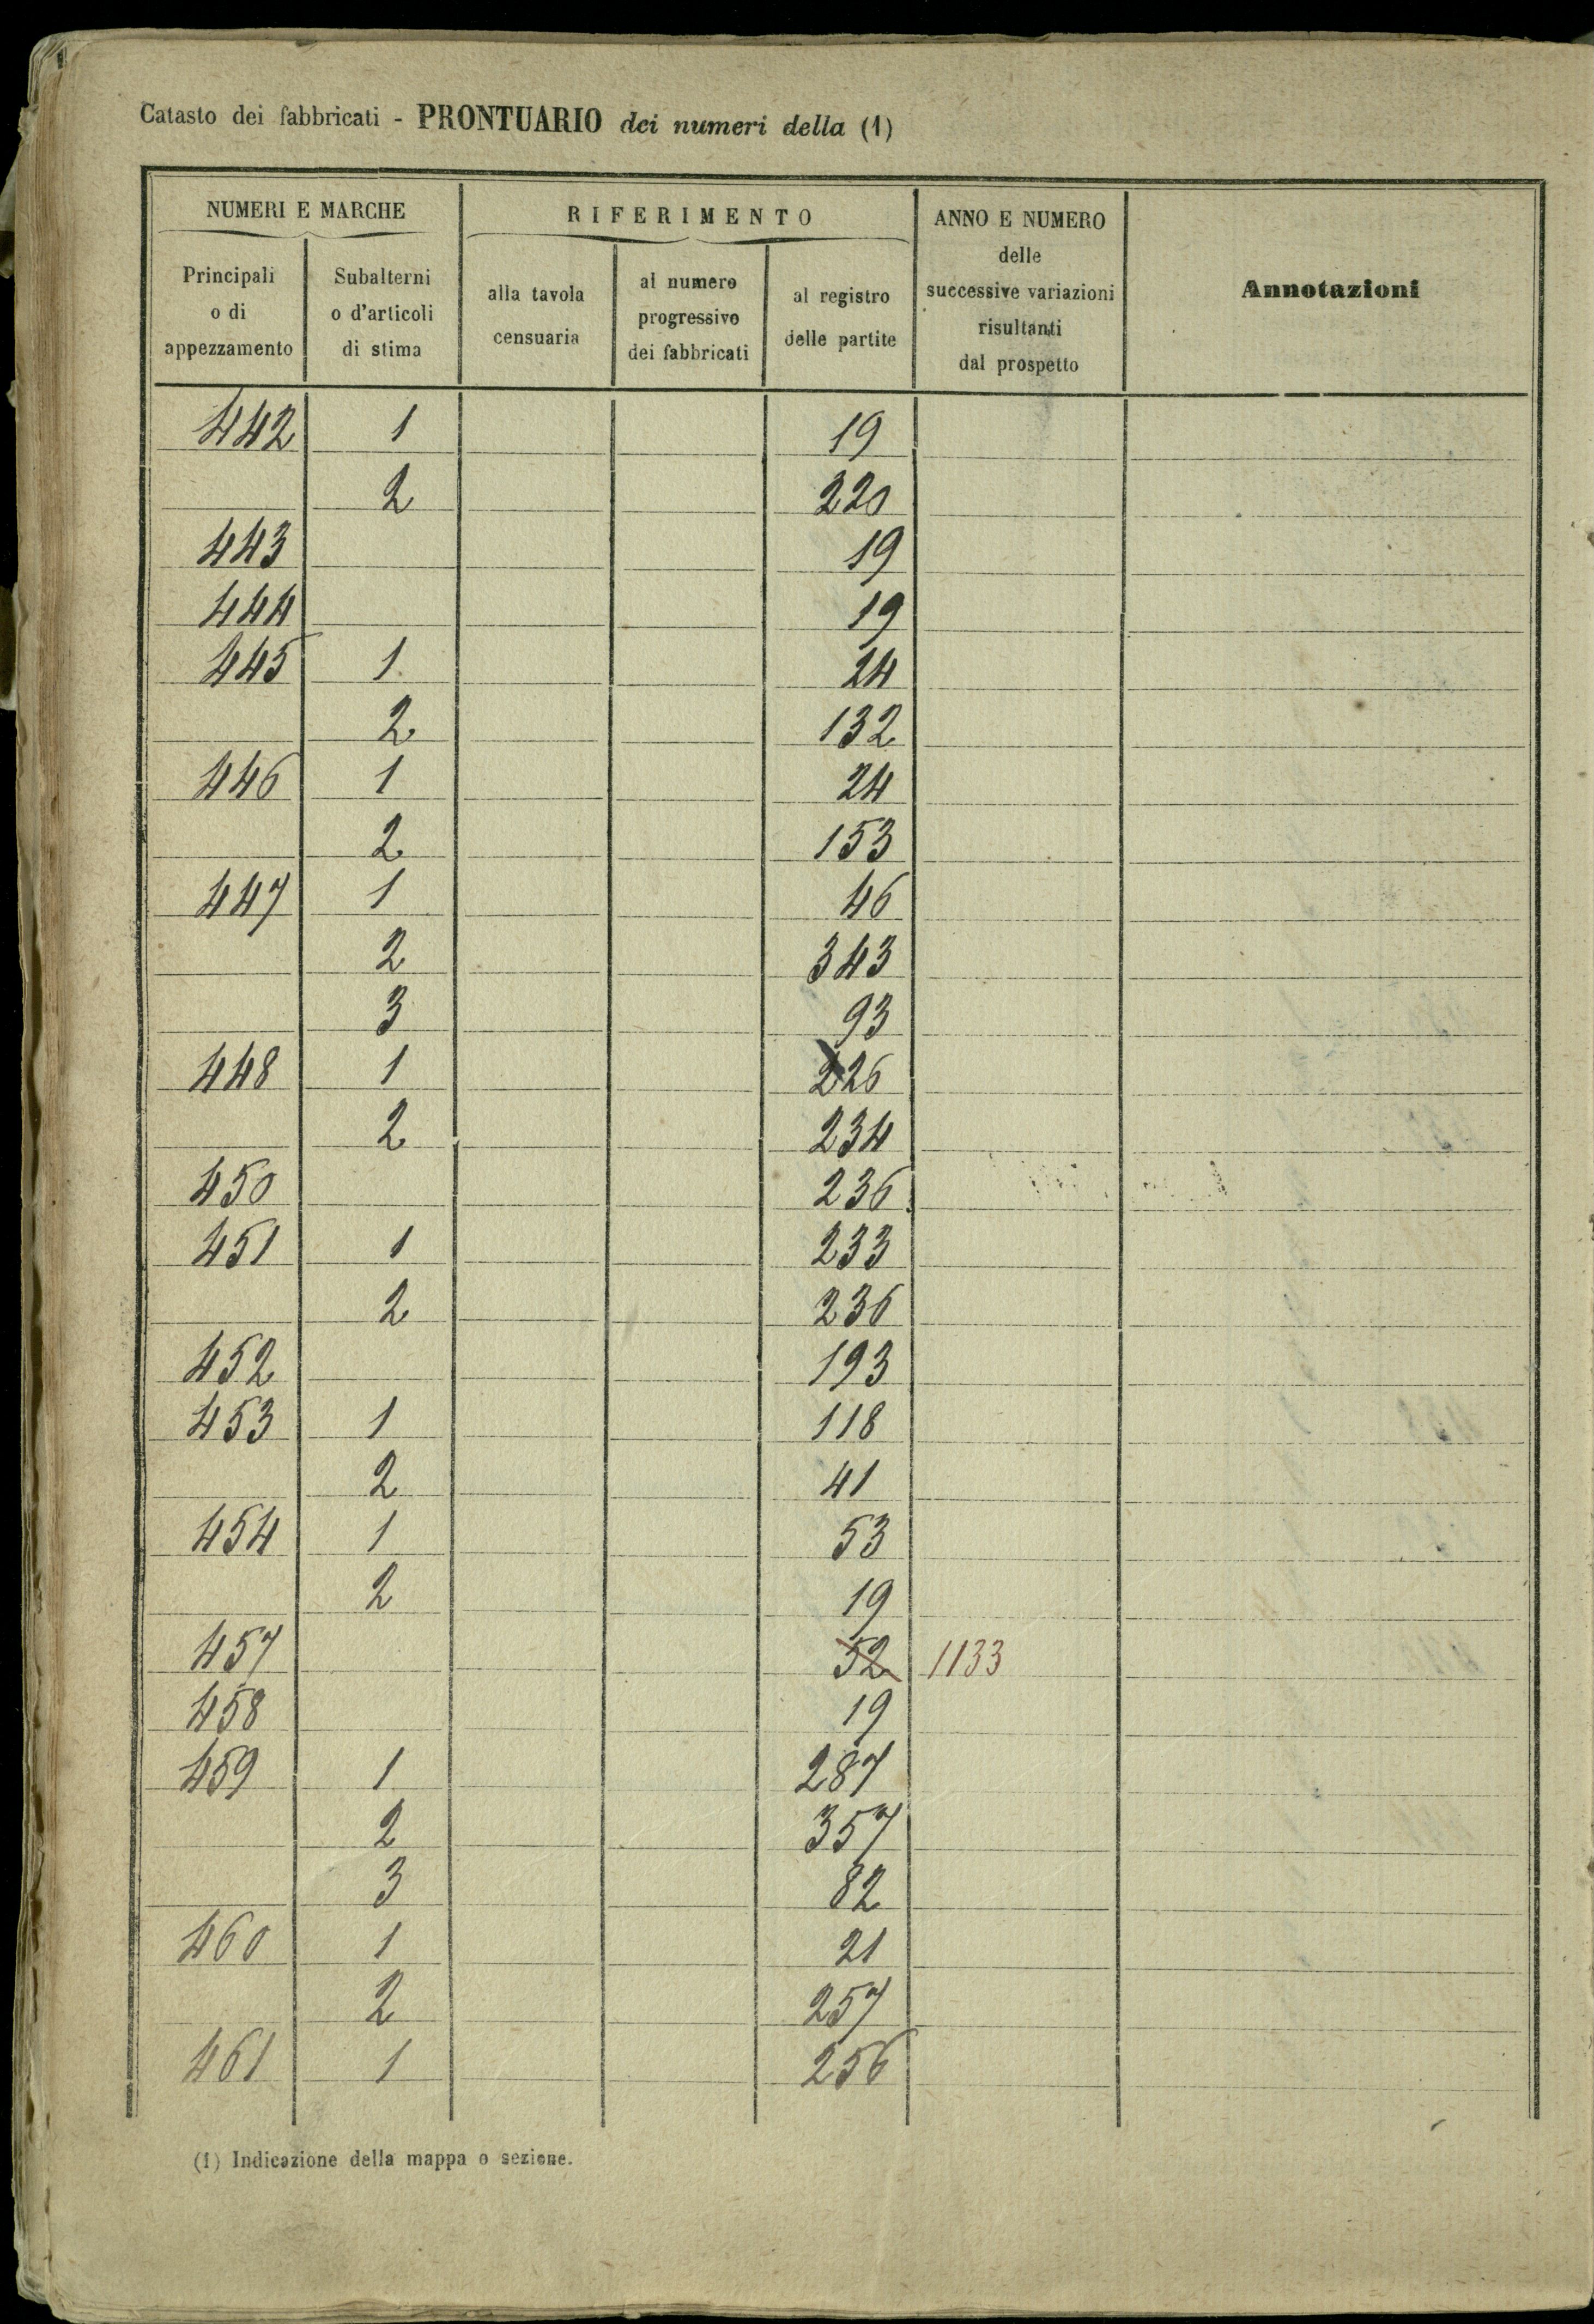 Catasto dei fabbricati - PRONTUARIO dei numeri della (1)
NUMERI E MARCHE
RIFERIMENTO
ANNO E NUMERO
delle
successive variazioni
risultanti
dal prospetto
Annotazioni
Principali
o di
appezzamento
Subalterni
o d'articoli
di stima
alla tavola
censuaria
al numero
progressivo
dei fabbricati
al registro
delle partite
442 1 19
2 220
443 19
444 19
445 1 24
2 132
446 1 24
2 153
447 1 46
2 343
3 93
448 1 226
2 234
450 236
451 1 233
2 236
452 193
453 1 118
2 41
454 1 53
2 19
457 52 1133
458 19
459 1 287
2 357
3 82
460 1 21
2 257
461 1 256
(1) Indicazione della mappa o sezione.